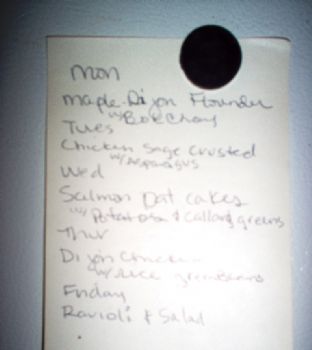 mon
maple-Dijon Flounder
w/ Bok Choy
Tues
Chicken Sage Crusted
w/ Asparagus
Wed
Salmon Oat cakes
w/ Potatoes & Collard greens
Thur
Dijon Chicken
w/ rice green beans
Friday
Ravioli & Salad